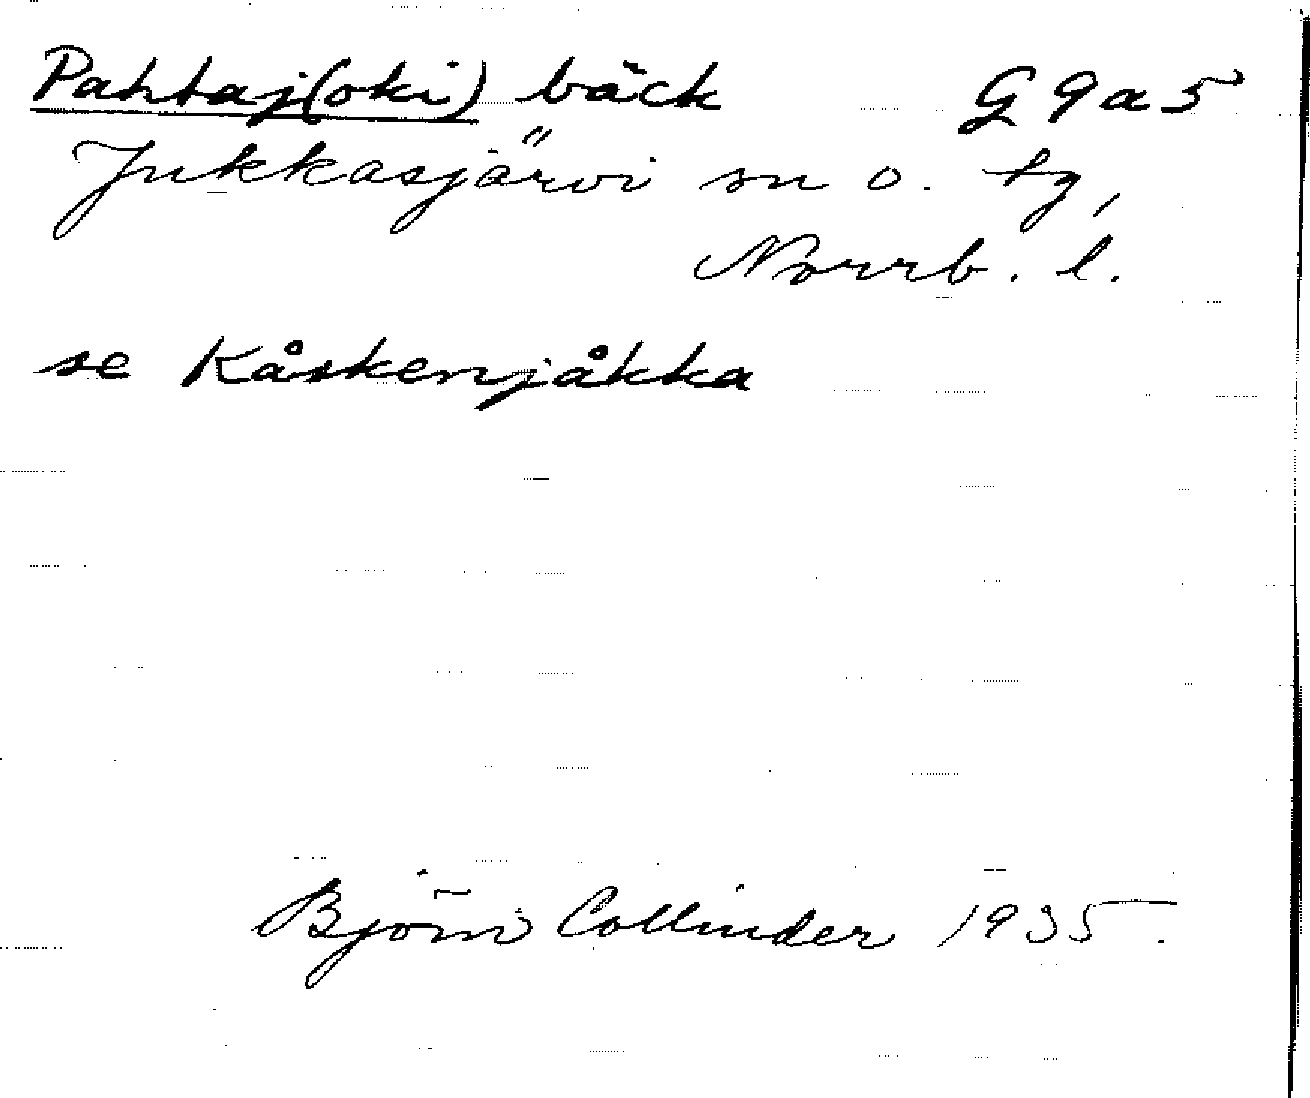 Pahtaj(oki) bäck G 9 a 5
Jukkasjärvi sn o. tg,
Norrb. l.
se Kåskenjåkka
Björn Collinder 1935.